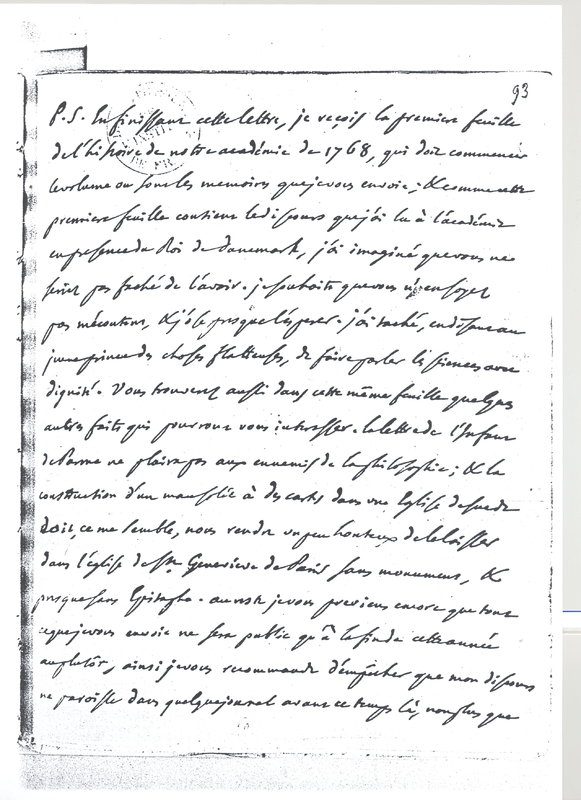 93
P.S. En finissant cette lettre, je reçois la premiere feuille
de l'histoire de notre académie de 1768, qui doit commencer
le volume ou sont les memoires que je vous envoie; & comme cette
premiere feuille contient le discours que j'ai lu à l'académie
en presence du Roi de Danemark, j'ai imaginé que vous ne
seriez pas faché de l'avoir. je souhaite que vous n'en soyez
pas mécontent, & j'ose presque l'esperer. j'ai taché, en disant au
jeune prince des choses flatteuses, de faire parler les sciences avec
dignité. Vous trouverez aussi dans cette même feuille quelques
autres faits qui pourront vous interesser. la lettre de l'Infant
de Parme ne plaira pas aux ennemis de la philosophie; & la
construction d'un mausolée à Descartes dans une Eglise de Suede
doit, ce me semble, nous rendre un peu honteux de le laisser
dans l'église de Ste Genevieve de Paris sans monument, &
presque sans Epitaphe. au reste je vous previens encore que tout
ce que je vous envoie ne sera public qu'à la fin de cette année
au plutôt, ainsi je vous recommande d'empêcher que mon discours
ne paroisse dans quelque journal avant ce temps là, non plus que